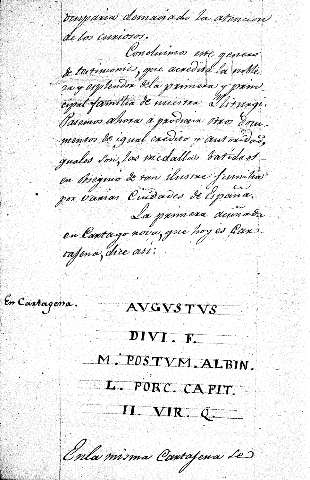 ocuparia demasiado la atencion
de los curiosos.
Concluimos este genero
de testimonio, que acredita la noble
za y esplendor de la primera y prin
cipal familia de nuestra
Pasemos ahora a producir otros docu
mentos de igual credito y autoridad,
quales son, las medallas batidas
en obsequio de tan ilustre familia
por varias Ciudades de España.
La primera acuñada
en Cartago nova, que hoy es Car
tajena, dice asi:
En Cartagena.
AUGUSTUS
DIVI. F.
M. POSTUM. ALBIN.
L. PORC. CAPIT.
II. VIR. Q.
En la misma Cartajena se